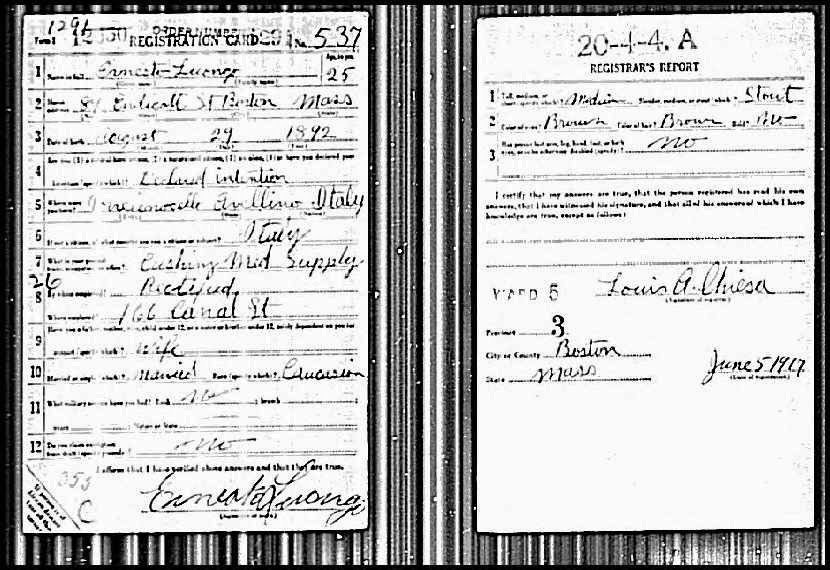 1291
Form 1 12350 ORDER NUMBER 291 No. 537
REGISTRATION CARD
Age, in yrs.
1 Name in full Ernesto Luongo 25
(Family name)
2 Home address 84 Endicott St Boston Mass
3 Date of birth August 29 1892
4 Are you (1) a natural born citizen, (2) a naturalized citizen, (3) an alien, (4) or have you declared your
intention (specify which)? Declared intention
5 Where were you born? Avellino Italy
6 If not a citizen, of what country are you a citizen or subject? Italy
7 What is your present trade, occupation, or office? Cushing Med Supply
26
8 By whom employed?
Where employed? 166 Canal St
9 Have you a father, mother, wife, child under 12, or a sister or brother under 12, solely dependent on you for
support (specify which)? Wife
10 Married or single (which)? Married Race (specify which)? Caucasian
11 What military service have you had? Rank No ; branch
years ; Nation or State
12 Do you claim exemption from draft (specify grounds)? No
I affirm that I have verified above answers and that they are true.
355
C
Ernesto Luongo
20-4-4. A
REGISTRAR'S REPORT
1 Tall, medium, or short (specify which)? Medium Slender, medium, or stout (which)? Stout
2 Color of eyes? Brown Color of hair? Brown Bald? No
3 Has person lost arm, leg, hand, foot, or both eyes, or is he otherwise disabled (specify)? No
I certify that my answers are true, that the person registered has read his own
answers, that I have witnessed his signature, and that all of his answers of which I have
knowledge are true, except as follows:
WARD 5 Louis A. Chiesa
(Signature of registrar)
Precinct 3
City or County Boston
State Mass June 5 1917
(Date of registration)